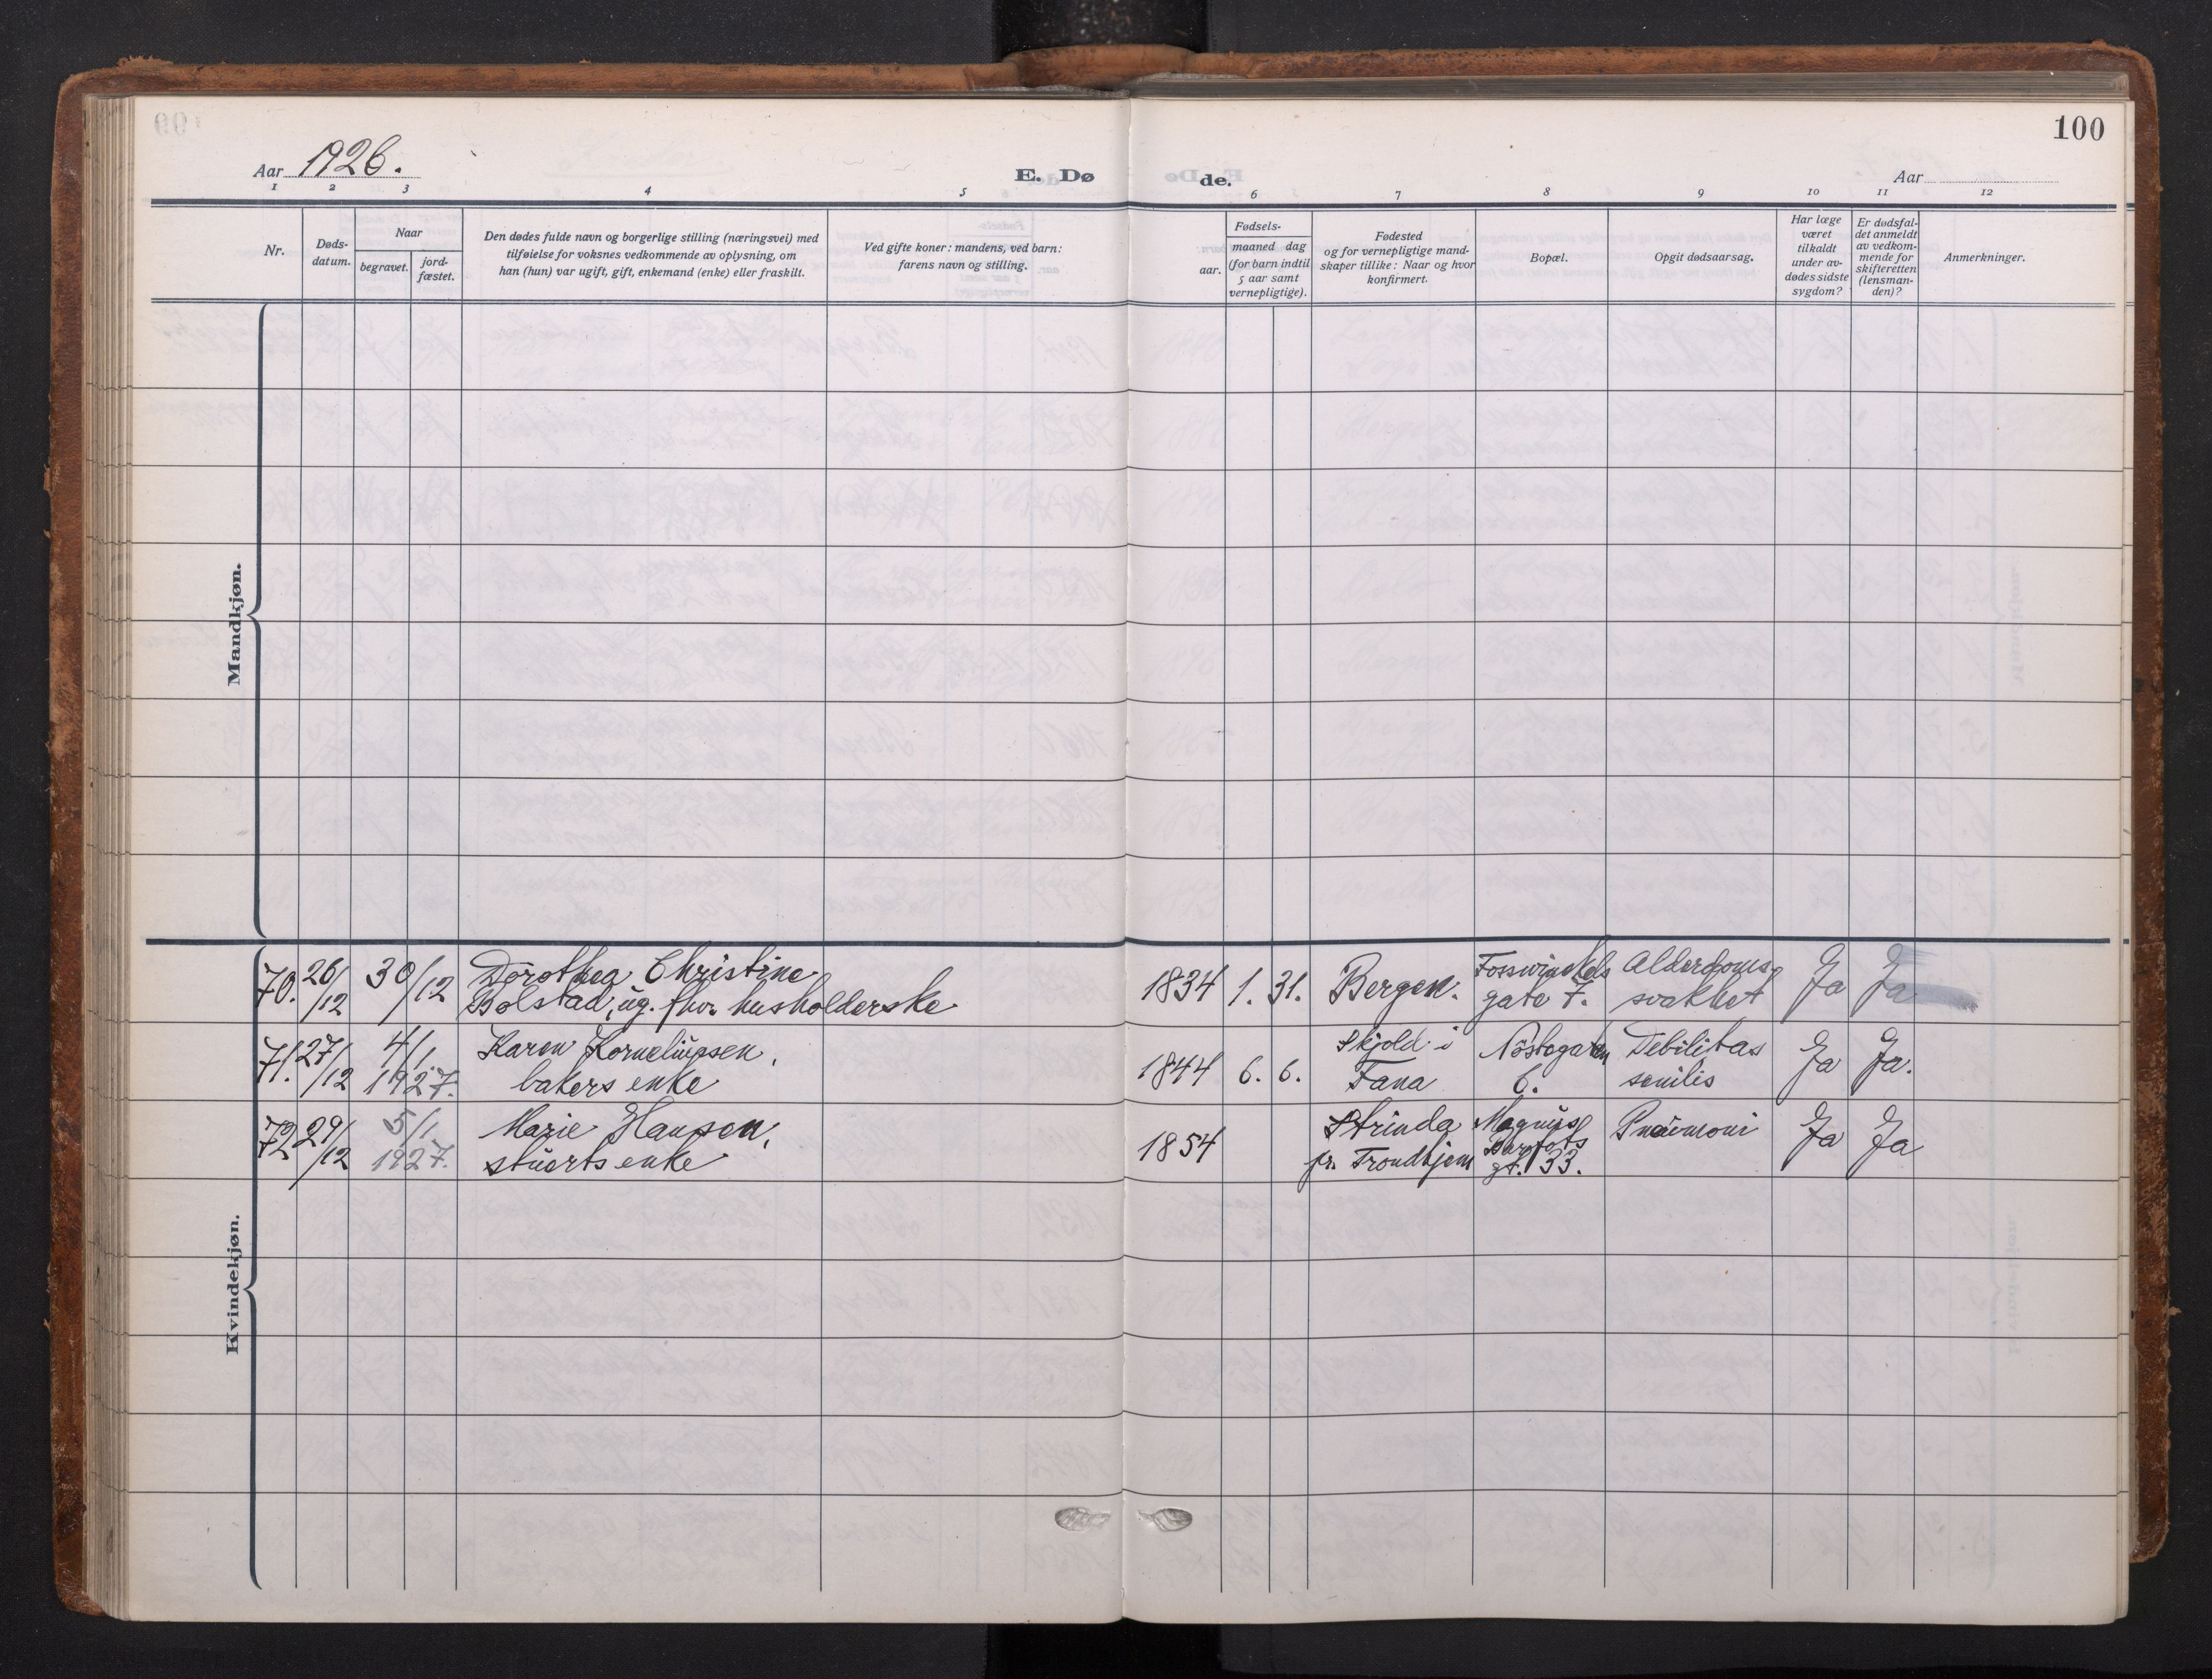 100
Aar 1926.
E. Dø
de.
Aar
1 2 3 4 5 6 7 8 9 10 11 12
Nr.
Døds-
datum.
Naar
begravet.
jord-
fæstet.
Den dødes fulde navn og borgerlige stilling (næringsvei) med
tilføielse for voksnes vedkommende av oplysning, om
han (hun) var ugift, gift, enkemand (enke) eller fraskilt.
Ved gifte koner: mandens, ved barn:
farens navn og stilling.
Fødsels-
aar.
maaned dag
(for barn indtil
5 aar samt
vernepligtige).
Fødested
og for vernepligtige mand-
skaper tillike: Naar og hvor
konfirmert.
Bopæl.
Opgit dødsaarsag.
Har læge
været
tilkaldt
under av-
dødes sidste
sygdom?
Er dødsfal-
det anmeldt
av vedkom-
mende for
skifteretten
(lensman-
den)?
Anmerkninger.
Mandkjøn.
Kvindekjøn.
70. 26/12 30/12 Dorothea Christine
Bolstad, ug. fhv. husholderske
1834 1. 31. Bergen.
Fosswinckels
gate 7.
Alderdoms-
svakhet
Ja Ja
71. 27/12 4/1
1927.
Karen Korneliussen,
bakers enke
1844 6. 6.
Skjold i
Fana
Nöstegaten
6.
Debilitas
senilis
Ja Ja.
72 29/12 5/1
1927.
Marie Hansen,
stuerts enke
1854
Strinda
pr. Trondhjem
Magnus
Barfots
gt. 33.
Pneumoni
Ja Ja